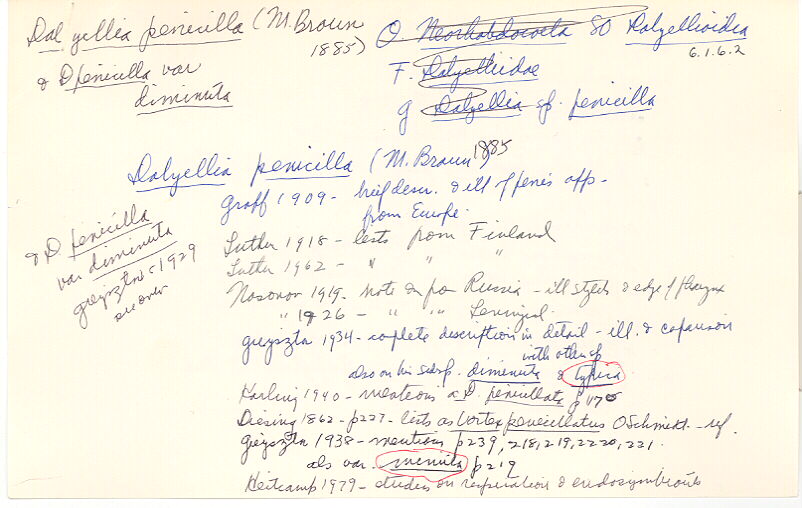 Dalyellia penicilla (M. Braun 1885)
& D penicilla var diminuta
O. Neorhabdocoela SO Dalyellioidea
6.1.6.2
F. Dalyelliidae
g Dalyellia sp. penicilla
Dalyellia penicilla (M. Braun) 1885
Graff 1909 - brief descr. & ill of penis app - from Europe.
& D. penicilla var diminuta
Gieysztor 1929
see over
Luther 1918 - lists from Finland
Luther 1962 - " " "
Nasonov 1919 - note on from Russia - ill stylet & edge of pharynx
" 1926 - " " " Leningrad.
Gieysztor 1934 - complete description in detail - ill. & comparison with other sp
also on his subsp. diminuta & typica
Karling 1940 - mentions D. penicillata p 170
Diesing 1862 - p227 - lists as Vortex penicillatus O Schmidt - ref.
Gieysztor 1938 - mentions p239, 218, 219, 2220, 221.
als var. minuta p219
Heitcamp 1979 - studies on respiration & endosymbionts